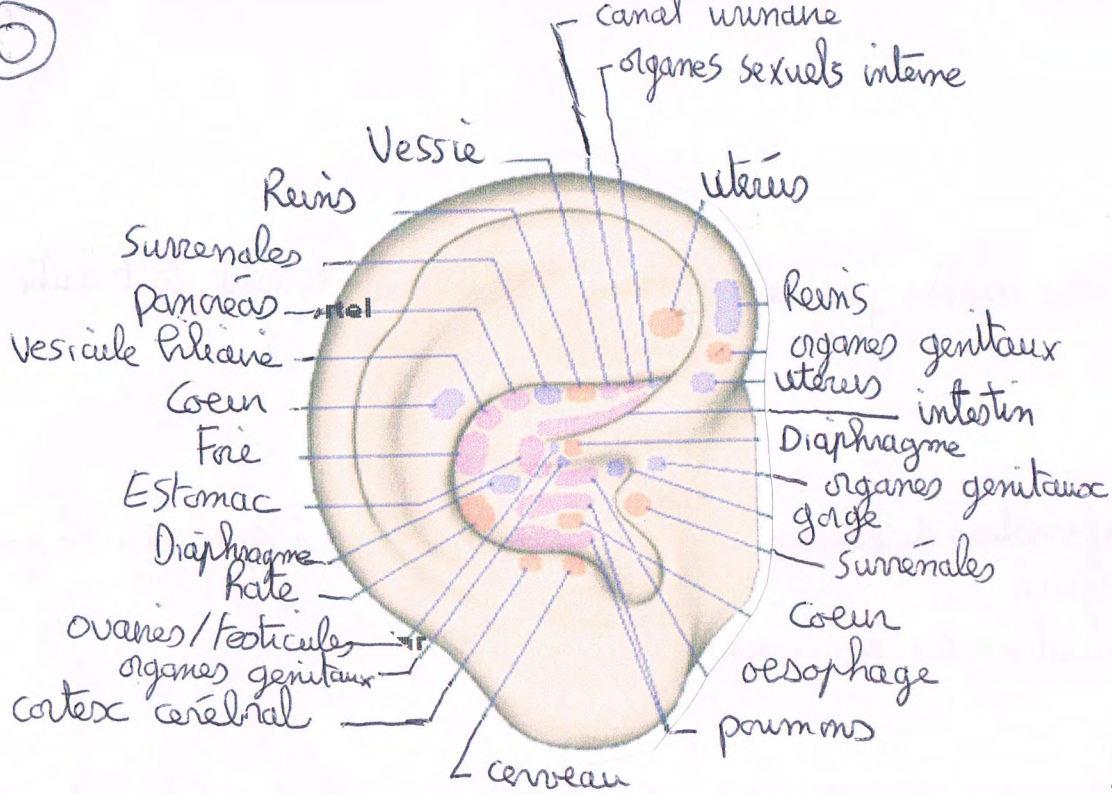 canal urinaire
organes sexuels interne
Vessie
utérus
Reins
Surrenales
pancréas
rtel
Vesicule biliaire
Coeur
Foie
Estomac
Diaphragme
Rate
ovaries/testicules
organes genitaux
cortex cérébral
cerveau
Reins
organes genitaux
utérus
intestin
Diaphragme
organes genitaux
gorge
Surrénales
Coeur
oesophage
poumons